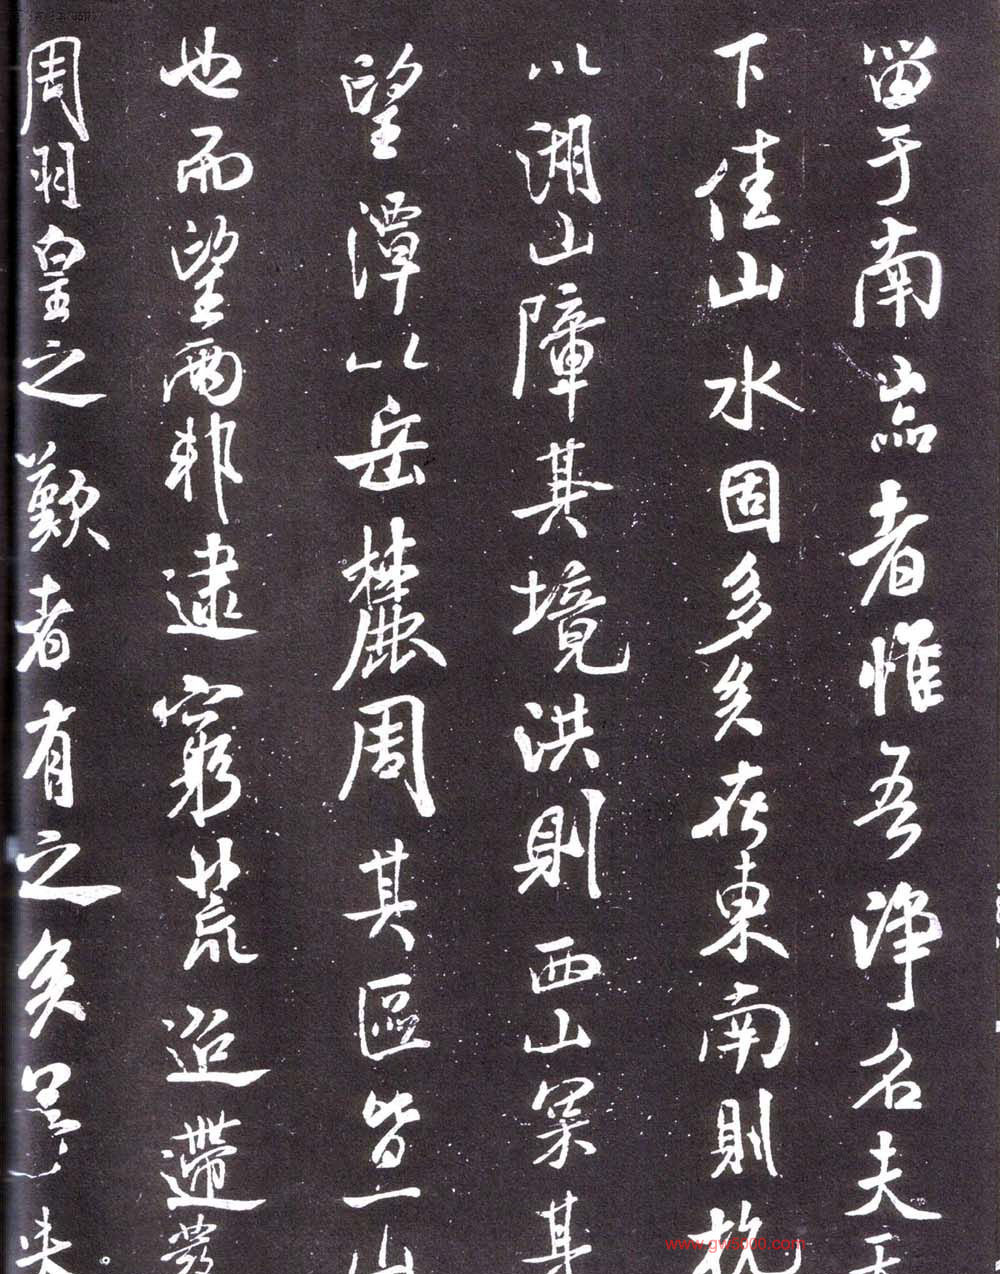 留于南嵒者惟吾浄名夫天
下佳山水固多矣在東南則杭
以湖山障其境洪則西山冪其
望潭以岳麓周其區皆一山
也而望兩邦逮窮荒迢遰發
周羽皇之歎者有之矣未